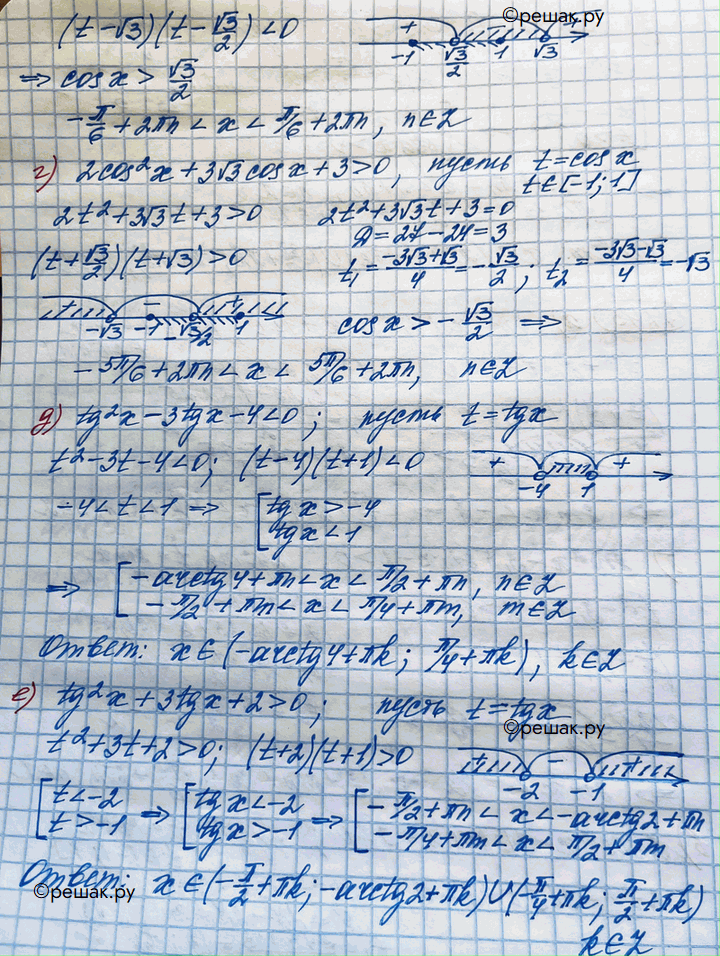 (t-√3)(t-√3/2)<0
©решак.ру
+ -1 √3/2 1 √3 +
=> cosx > √3/2
-π/6+2πn < x < π/6+2πn, n∈Z
г) 2cos²x+3√3cosx+3>0, пусть t=cosx
t∈[-1;1]
2t²+3√3t+3>0 2t²+3√3t+3=0
D=27-24=3
(t+√3/2)(t+√3)>0 t₁=(-3√3+√3)/4=-√3/2; t₂=(-3√3-√3)/4=-√3
+ - +
-√3 -1 -√3/2 1 cosx>-√3/2 =>
-5π/6+2πn<x<5π/6+2πn, n∈Z
д) tg²x-3tgx-4<0; пусть t=tgx
t²-3t-4<0; (t-4)(t+1)<0 + +
-4 1
-4<t<1 => [tgx>-4
tgx<1
=> [-arctg4+πn<x<π/2+πn, n∈Z
-π/2+πm<x<π/4+πm, m∈Z
Ответ: x∈(-arctg4+πk; π/4+πk), k∈Z
е) tg²x+3tgx+2>0; пусть t=tgx
©решак.ру
t²+3t+2>0; (t+2)(t+1)>0 + - +
-2 -1
[t<-2 => [tgx<-2 => [-π/2+πn<x<-arctg2+πn
t>-1 tgx>-1 -π/4+πm<x<π/2+πm
Ответ: x∈(-π/2+πk;-arctg2+πk)∪(-π/4+πk; π/2+πk)
©решак.ру
k∈Z